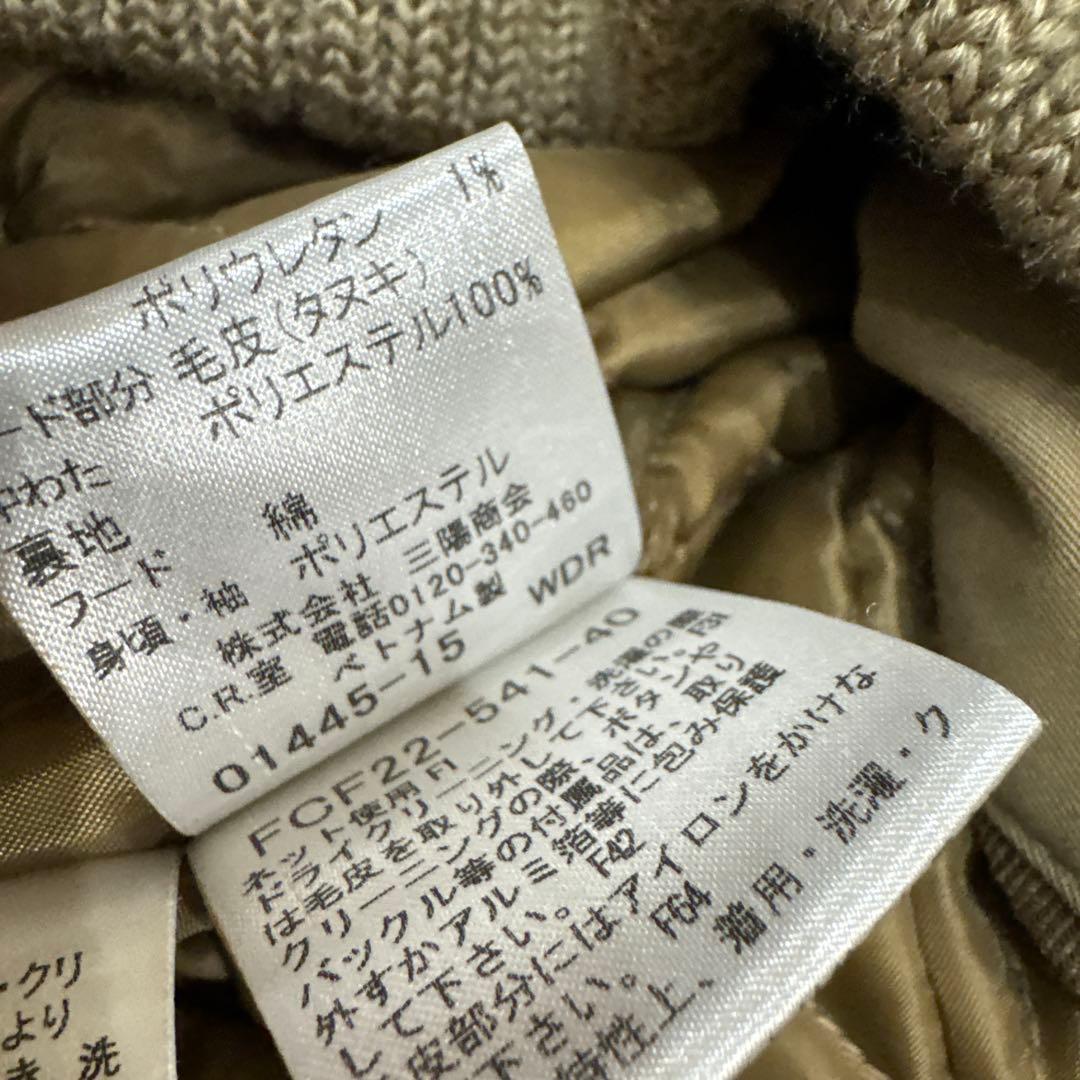 ポリウレタン 1%
ード部分 毛皮(タヌキ)
ポリエステル100%
中わた
裏地
フード 綿
身頃・袖 ポリエステル
株式会社 三陽商会
C.R.室 電話0120-340-460
ベトナム製
01445-15 WDR
FCF22-541-40
ネット使用 F1
ドライクリーニング・洗濯の際
は毛皮を取り外して下さい。 F31
クリーニングの際、ボタンや
バックル等の付属品は、取り
外すかアルミ箔等に包み保護
して下さい。 F42
皮部分にはアイロンをかけな
下さい。 F64
特性上、着用・洗濯・ク
ークリ
より
洗